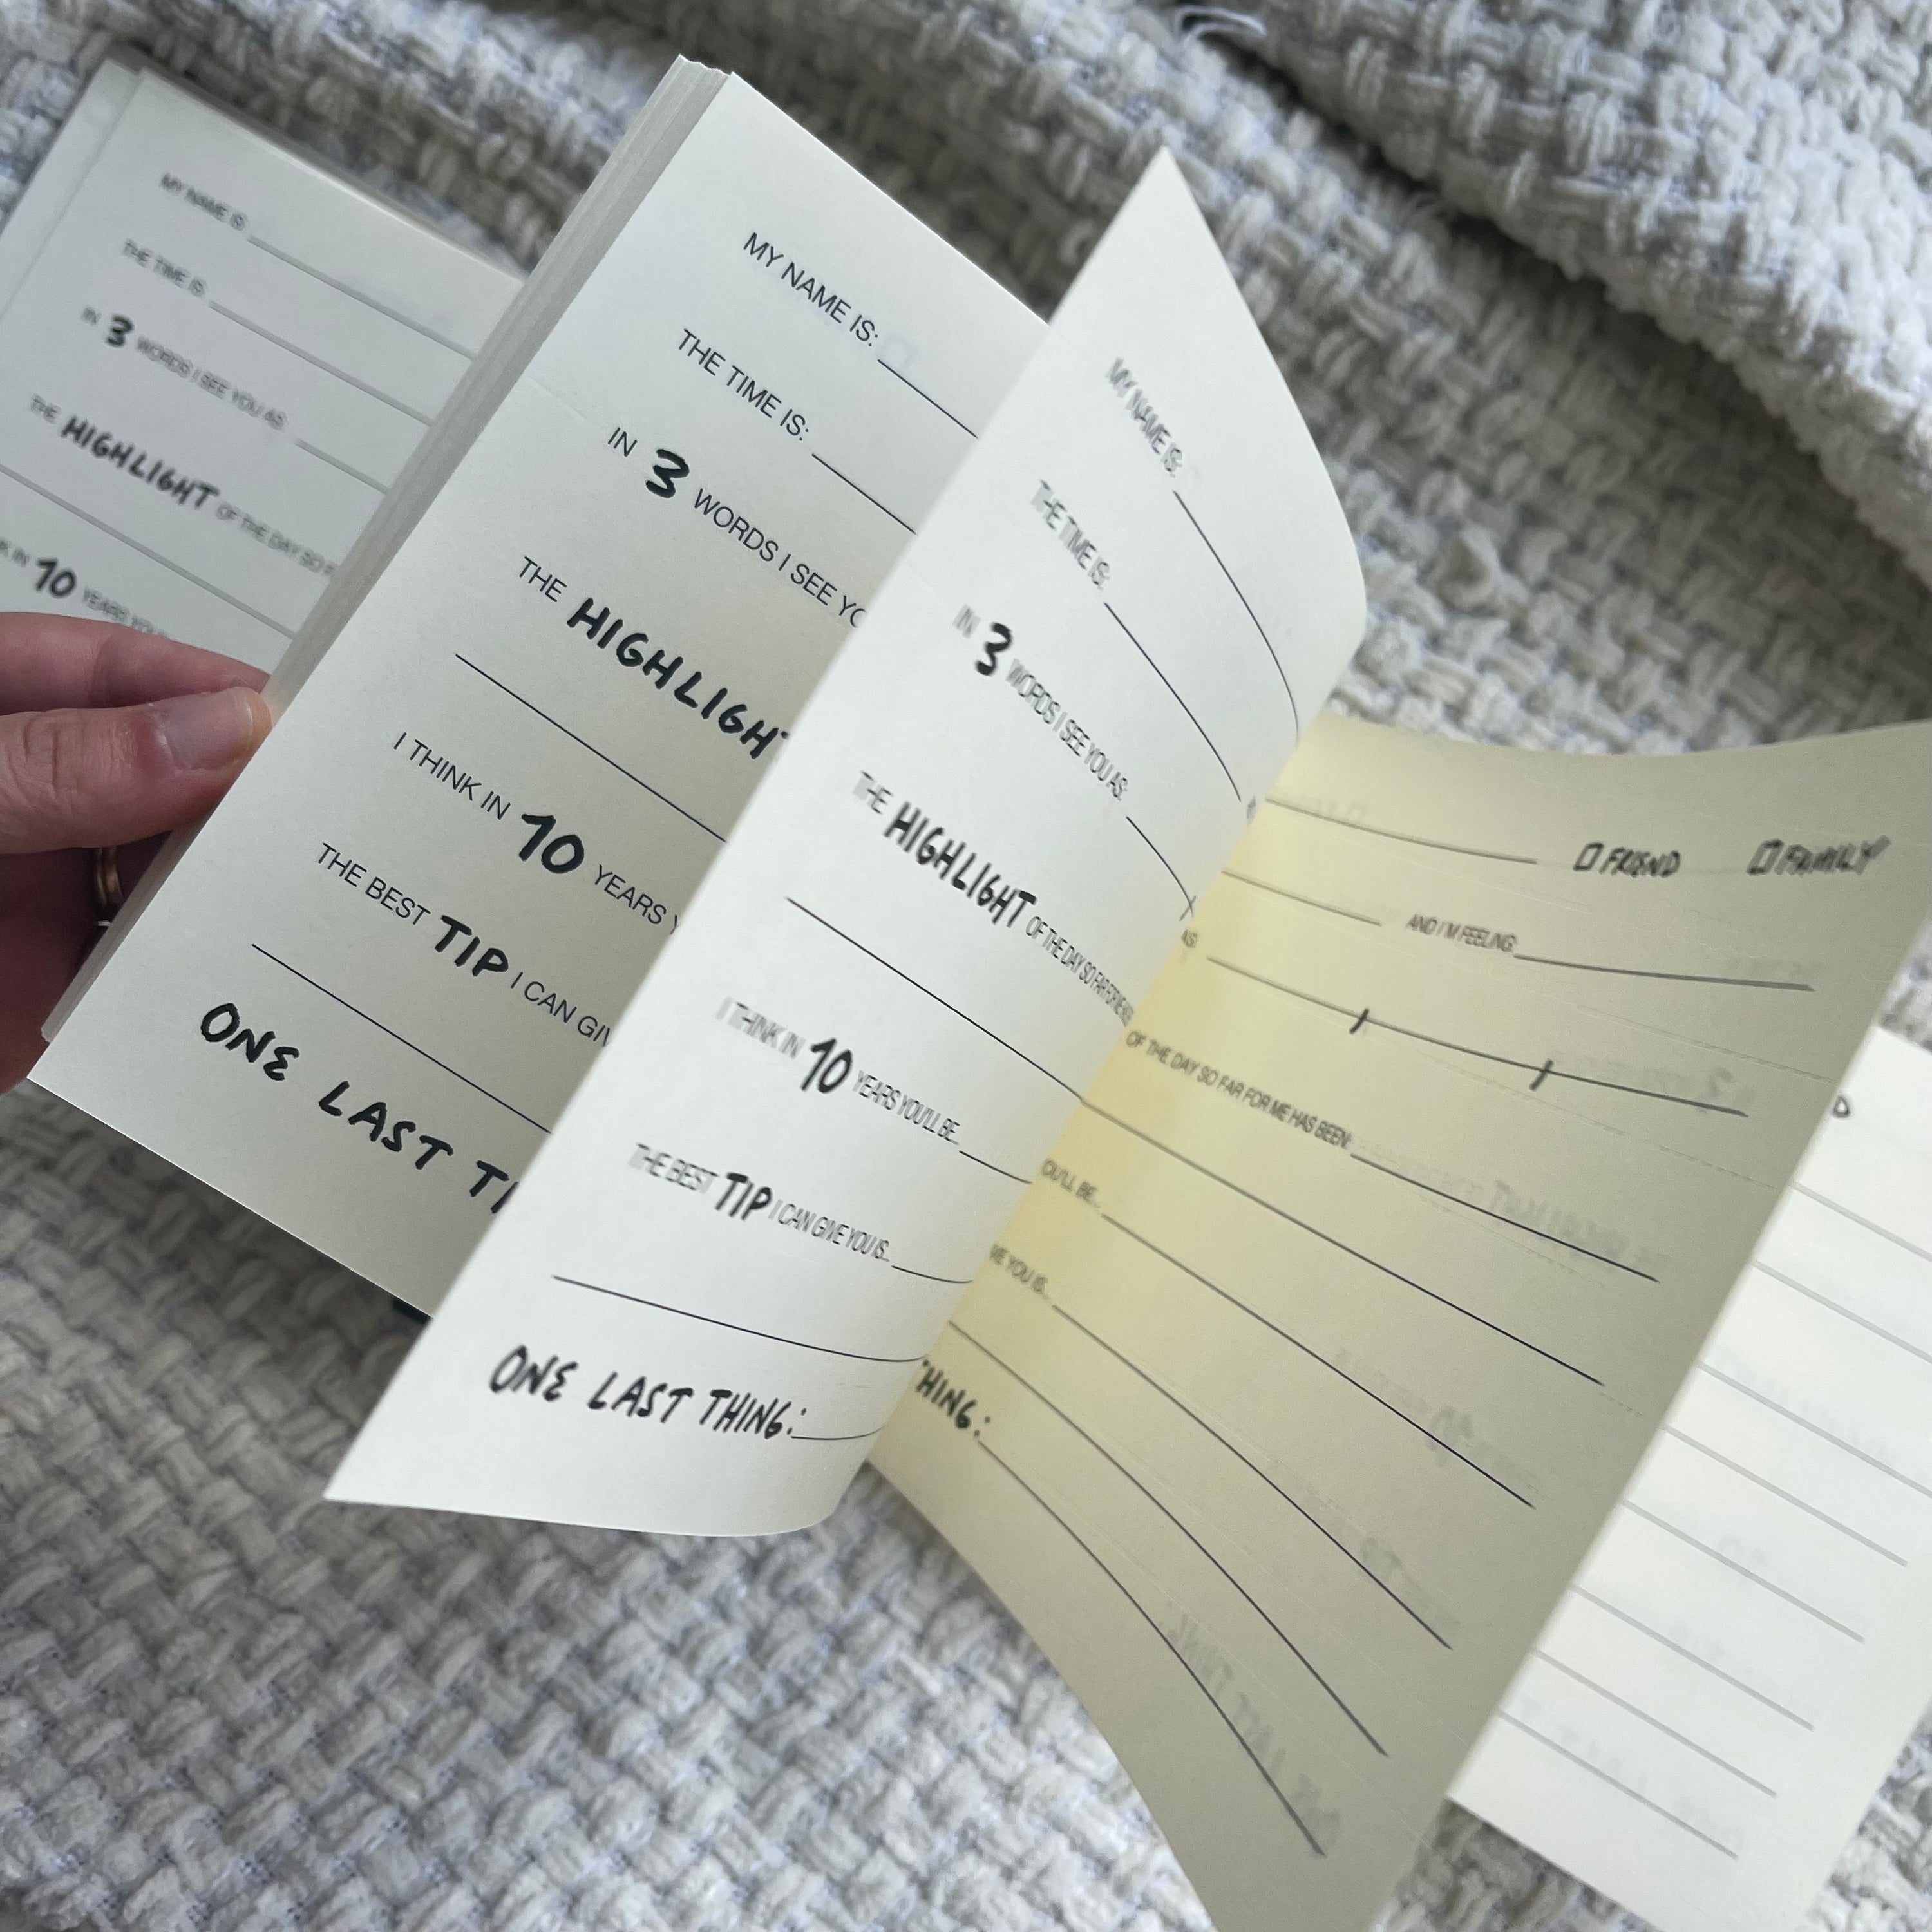 MY NAME IS:
THE TIME IS:
IN 3 WORDS I SEE YOU AS:
THE HIGHLIGHT OF THE DAY SO F
K IN 10 YEARS YOU'
MY NAME IS:
THE TIME IS:
IN 3 WORDS I SEE YO
THE HIGHLIGHT
I THINK IN 10 YEARS Y
THE BEST TIP I CAN GIV
ONE LAST TI
MY NAME IS:
THE TIME IS:
IN 3 WORDS I SEE YOU AS:
THE HIGHLIGHT OF THE DAY SO FAR FOR ME HAS
I THINK IN 10 YEARS YOU'LL BE...
THE BEST TIP I CAN GIVE YOU IS...
ONE LAST THING:
FRIEND FAMILY
AND I'M FEELING:
AS:
OF THE DAY SO FAR FOR ME HAS BEEN:
OU'LL BE...
VE YOU IS...
THING:
D